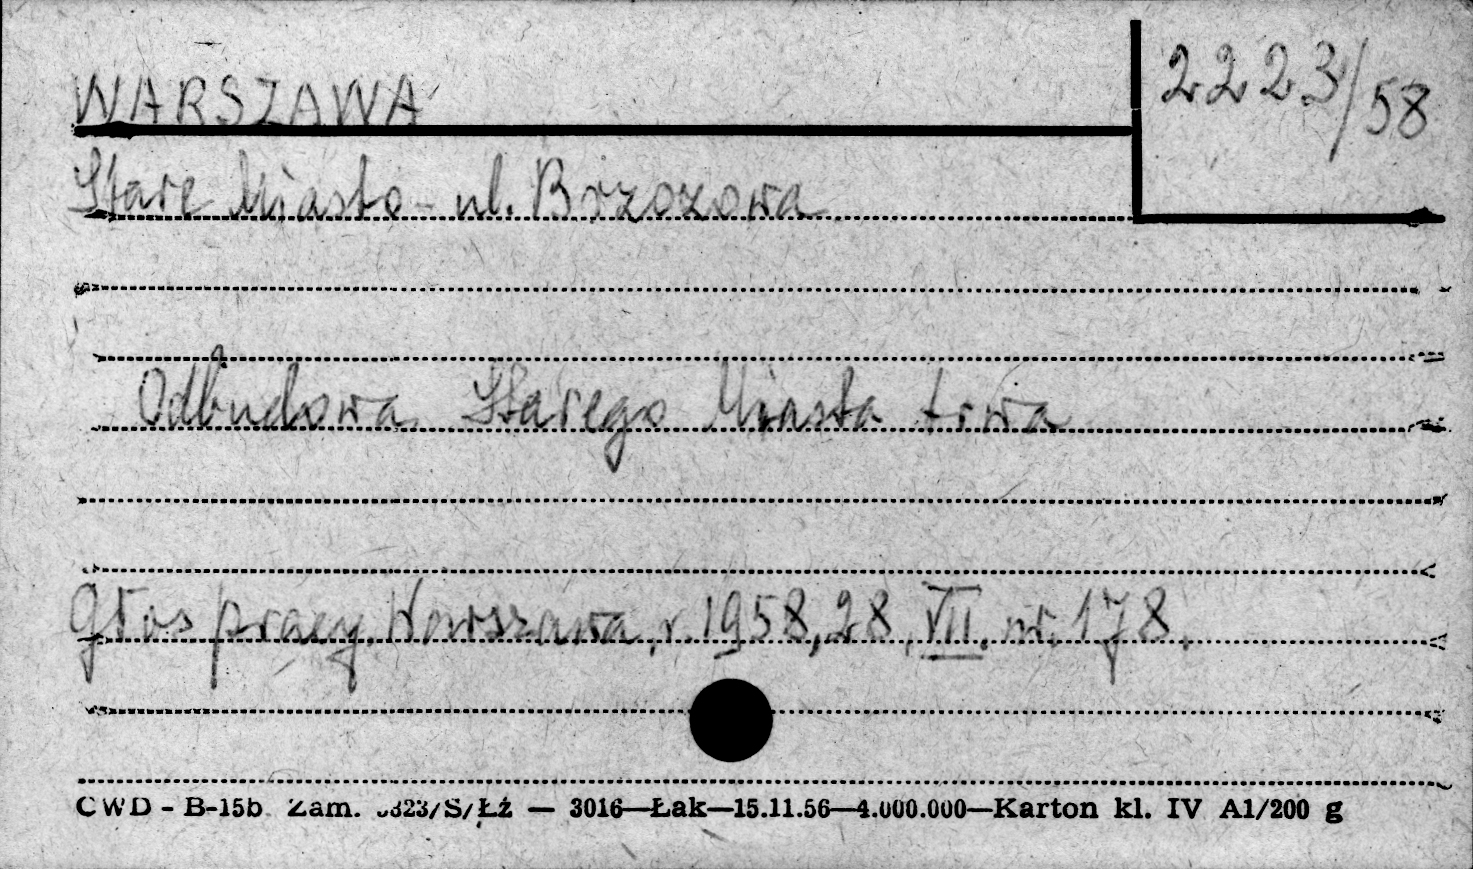 WARSZAWA
2223/58
Stare Miasto - ul. Brzozowa
Odbudowa Starego Miasta trwa
Głos pracy. Warszawa, r. 1958, 28, VII. nr. 178.
CWD - B-15b Zam. 5323/S/Łź — 3016—Łak—15.11.56—4.000.000—Karton kl. IV A1/200 g